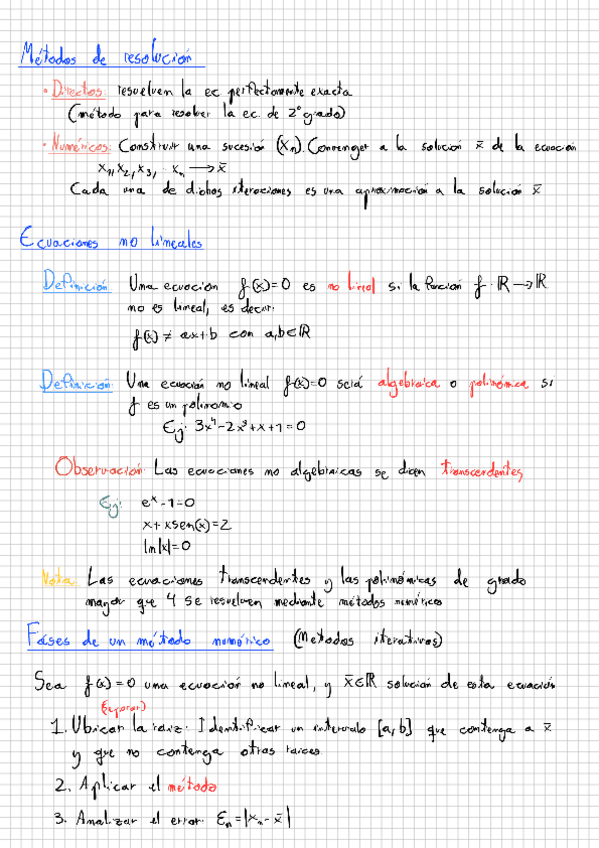 Métodos de resolución
· Directos: resuelven la ec perfectamente exacta
(método para resolver la ec. de 2º grado)
· Numéricos: Construir una sucesión (Xn). Converger a la solución x̄ de la ecuación
x₁, x₂, x₃, . xₙ → x̄
Cada una de dichas iteraciones es una aproximación a la solución x̄
Ecuaciones no lineales
Definición: Una ecuación f(x)=0 es no lineal si la función f: ℝ → ℝ
no es lineal, es decir:
f(x) ≠ ax+b con a,b∈ℝ
Definición: Una ecuación no lineal f(x)=0 será algebraica o polinómica si
f es un polinomio
Ej: 3x⁴-2x³+x+1=0
Observación: Las ecuaciones no algebraicas se dicen transcendentes
Ej: eˣ-1=0
x+xsen(x)=2
ln|x|=0
Nota: Las ecuaciones transcendentes y las polinómicas de grado
mayor que 4 se resuelven mediante métodos numéricos
Fases de un método numérico (Métodos iterativos)
Sea f(x)=0 una ecuación no lineal, y x̄∈ℝ solución de esta ecuación
(separar)
1. Ubicar la raíz: Identificar un intervalo [a,b] que contenga a x̄
y que no contenga otras raíces
2. Aplicar el método
3. Analizar el error. Eₙ=|xₙ-x̄|